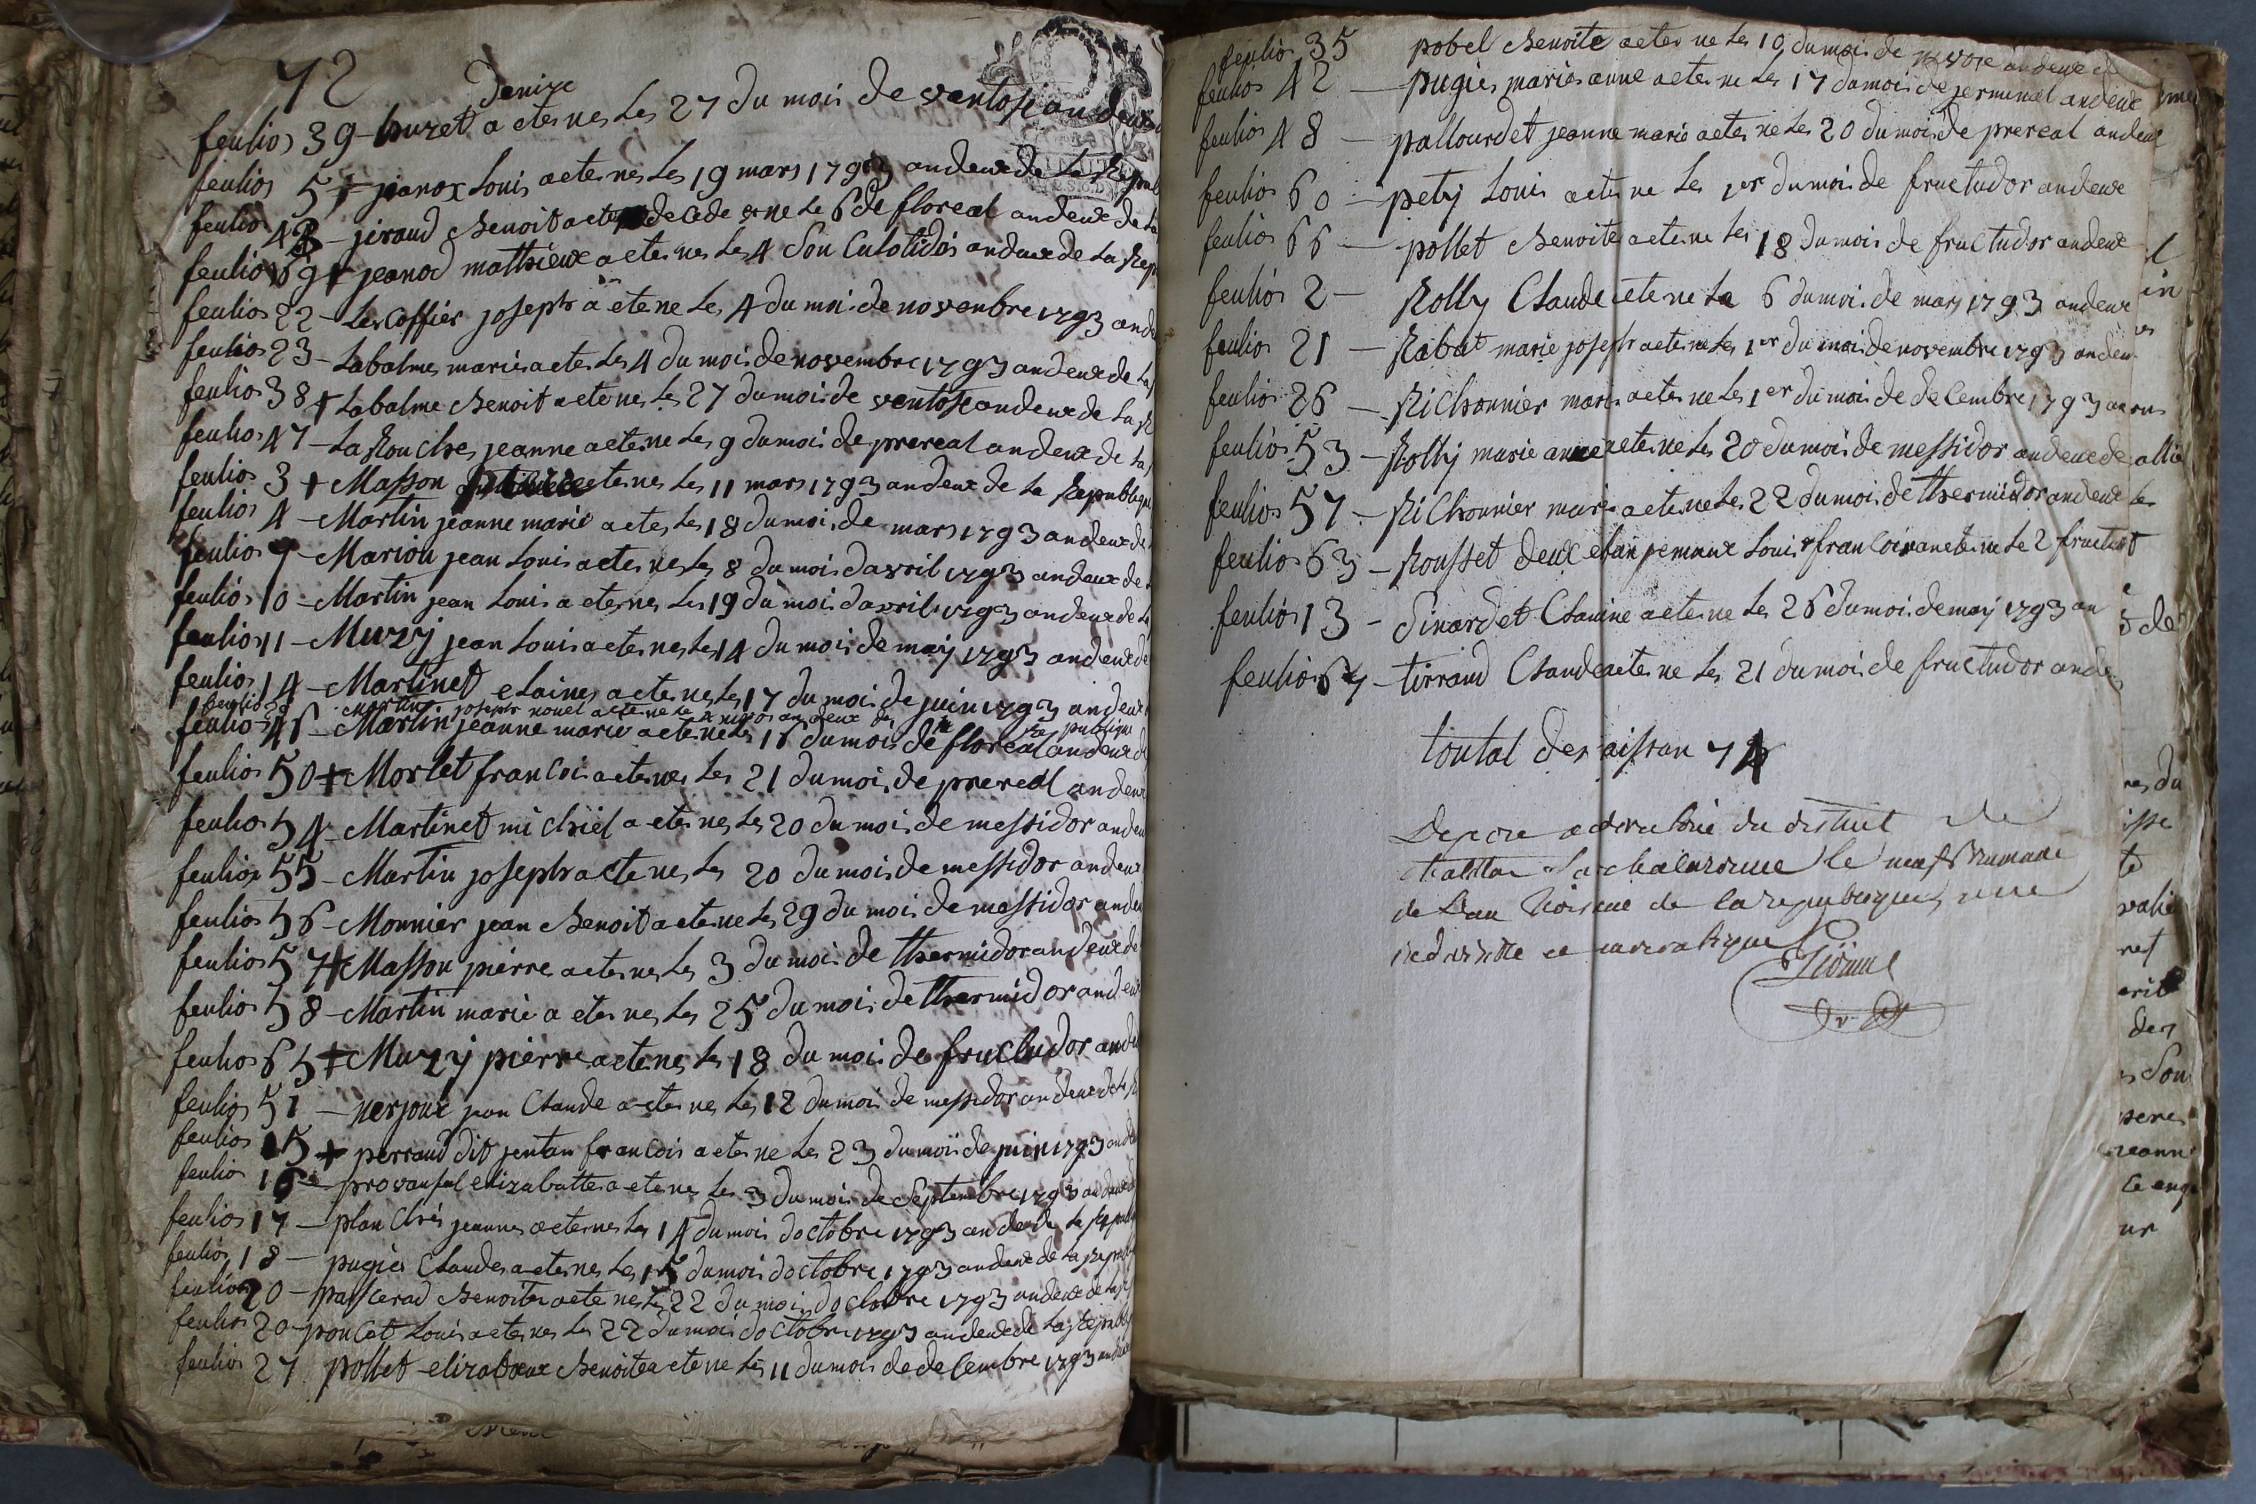 72
denixe
feulios 39 - huret a etes nes les 27 du mois de ventose an deux
feulios 5 + jeanox Louis a etes nes les 19 mars 1793 an deux de la Republ
feulios 43 - jeraud Benoit a etes de cede ne le 6 de floreal an deux de la
feulios 69 + jeanod mathieux a etes nes les 4 Son Culotides an deux de la Rep
feulios 22 - Lescoffier joseph a ete ne les 4 du moi de novenbre 1793 an de
feulios 23 - Labalmes marie a etes les 4 du mois de novembre 1793 an deux de la
feulios 38 + Labalme Benoit a ete nes les 27 du mois de ventose an deux de la R
feulios 47 - LaRouches jeanne a ete ne les 9 du mois de prereal an deux de la
feulios 3 + Masson etes nes les 11 mars 1793 an deux de la Republique
feulios 4 - Martin jeanne marie a etes les 18 du mois de mars 1793 an deux de
feulios 9 - Marion jean Louis a etes nes les 8 du mois davril 1793 an deux de
feulios 10 - Martin jean Louis a etes nes les 19 du mois davril 1793 an deux de la
feulios 11 - Muzy jean Louis a etes nes les 14 du mois de maij 1793 an deux de
feulios 14 - Martinet elaines a etes nes les 17 du mois de juin 1793 an deux
feulios martin joseph nouel a ete ne le 4 nivos an deux de la Republique
feulios 46 - Martin jeanne marie a ete ne les 16 du mois de floreal an deux de
feulios 50 + Morlet francois a etes nes les 21 du mois de prereal an deux
feulios 54 - Martinet michiel a etes nes les 20 du mois de messidor an deu
feulios 55 - Martin joseph a ete nes les 20 du mois de messidor an deux
feulios 56 - Monnier jean Benoit a ete ne les 29 du mois de messidor an deu
feulios 57 + Masson pierre a etes nes les 3 du mois de thermidor an deux de
feulios 58 - Martin marie a etes nes les 25 du mois de thermidor an deux
feulios 65 + Muzy pierre a ete nes les 18 du mois de fructudor an de
feulios 51 - nerjoux jean Claude a etes nes les 12 du mois de messidor an deux de la R
feulios 15 + perraud dit jentan francois a etes ne les 23 du moi de juin 1793 an de
feulios 16 - elizabattes a ete nes les 3 du mois de Septembre 1793 an deux de
feulios 17 - planches jeannes a etes nes les 14 du mois doctobre 1793 an de la Repu
feulios 18 - pugies Claudes a etes nes les 15 du mois doctobre 1793 an deux de la Repu
feulios 20 - passerad Benoites a ete nes les 22 du mois doctobre 1793 an deux de la
feulios 20 - poncet Louis a etes nes les 22 du mois doctobre 1793 an deux de la Republ
feulios 27 pollet Benoite a ete ne les 11 du mois de decembre 1793 an deux
feulios 35 pobel Benoite a etes ne les 10 du mois de nivose an deux
feulios 42 - pugies maries anne a etes ne les 17 du mois de jerminal an deux
feulios 48 - pallourdet jeanne marie a etes ne les 20 du mois de prereal an deux
feulios 60 - petij Louis a etes ne les 1er du mois de fructudor an deux
feulios 66 - pollet Benoites a ete ne les 18 du mois de fructudor an deux
feulios 2 - Rolly Claude a ete ne le 6 du moi de mars 1793 an deux
feulios 21 - Rabat marie joseph a ete ne les 1er du mois de novembre 1793 an deu
feulios 26 - Richonnier marie a etes ne les 1er du mois de decembre 1793
feulios 53 - Rolly marie anne a ete ne les 20 du mois de messidor an deux de
feulios 57 - Richonnier marie a ete ne les 22 du mois de thermidor an deux
feulios 63 - Rousset deux efan jemaux Louis francois a nete ne le 2 fructud
feulios 13 - Sinardet Claurine a ete ne les 26 du mois de maij 1793 an
feulios 67 - tirraud Claude a ete ne les 21 du mois de fructudor an de
toutal des naissan 74
au du district de
Chatillon sur Chalaronne le neuf brumaire
de Lan troisieme de la republique une
indivisible et